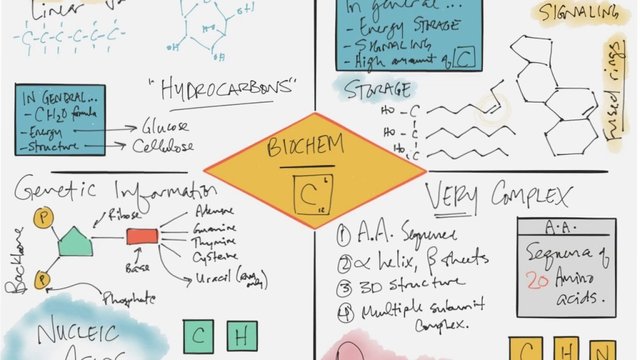 Linear
-C-C-C-C-C-C-
OH
OH
"HYDROCARBONS"
IN GENERAL...
- CH2O formula
- Energy → Glucose
- Structure → Cellulose
In general...
- ENERGY STORAGE
- SIGNALING
- High amount of C
SIGNALING
STORAGE
Fused rings
HO - C
HO - C
HO - C
BIOCHEM
C
6
12
Genetic Information
P
P
Backbone
Ribose
Base
Phosphate
Adenine
Guanine
Thymine
Cysteine
Uracil (RNA only)
NUCLEIC
ACIDS
C H
VERY COMPLEX
1 A.A. Sequence
2 α helix, β sheets
3 3D Structure
4 Multiple subunit
Complex.
A.A.
Sequence of
20 Amino
acids.
C H N